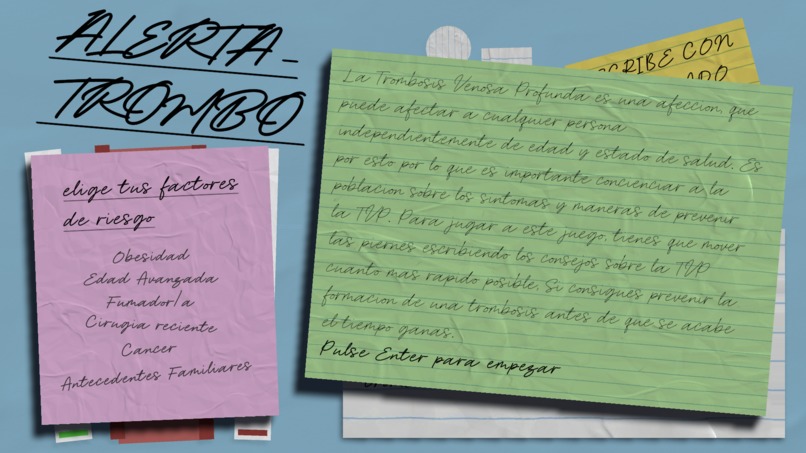 ALERTA-
TROMBO
elige tus factores
de riesgo
Obesidad
Edad Avanzada
Fumador/a
Cirugia reciente
Cancer
Antecedentes Familiares
CRIBE CON
La Trombosis Venosa Profunda es una afeccion, que
puede afectar a cualquier persona
independientemente de edad y estado de salud. Es
por esto por lo que es importante concienciar a la
poblacion sobre los sintomas y maneras de prevenir
la TVP. Para jugar a este juego, tienes que mover
las piernes escribiendo los consejos sobre la TVP
cuanto mas rapido posible. Si consigues prevenir la
formacion de una trombosis antes de que se acabe
el tiempo ganas.
Pulse Enter para empezar